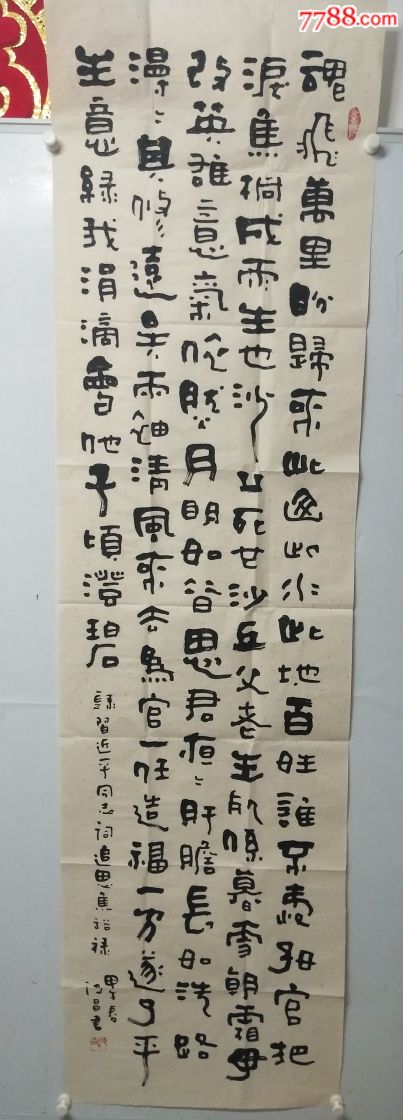 7788.com
魂飛萬里盼歸來此此水此地百姓誰不愛好官把
淚焦桐成雨生也沙丘死也沙丘父老生死係暮雪朝霜毋
改英雄意氣依然月明如昔思君夜〻肝膽長如洗路
漫〻其修遠矣兩袖清風來去為官一任造福一方遂了平
生意綠我涓滴會他千頃澄碧
錄習近平同志詞追思焦裕祿
甲午春
昌書